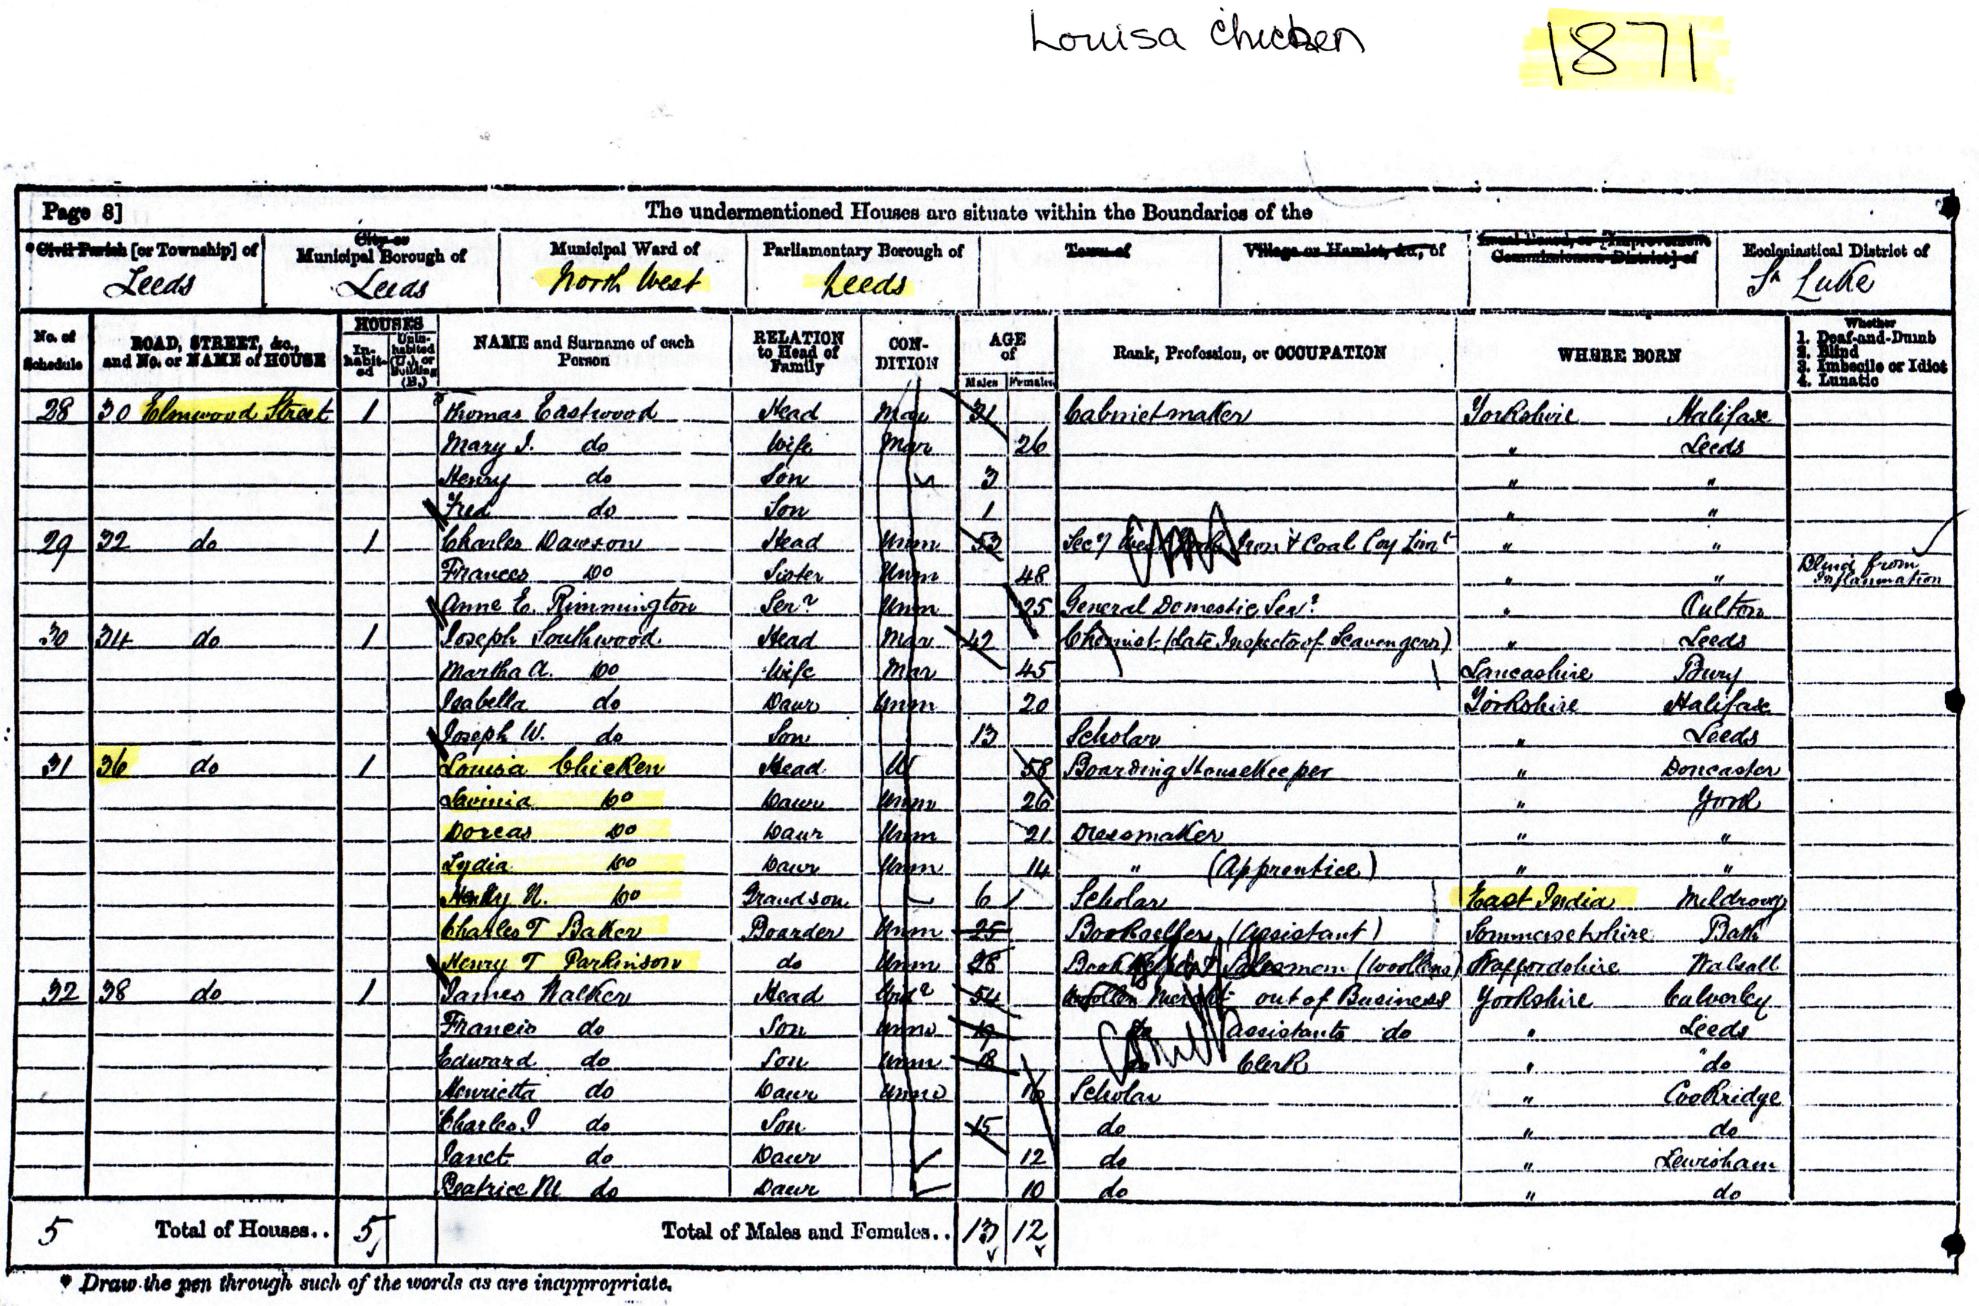 Louisa Chicken 1871
Page 8] The undermentioned Houses are situate within the Boundaries of the
* Civil Parish [or Township] of City or Municipal Borough of Municipal Ward of Parliamentary Borough of Town of Village or Hamlet, &c., of Local Board, or [Improvement Commissioners District] of Ecclesiastical District of
Leeds Leeds North West Leeds St Luke
No. of Schedule ROAD, STREET, &c., and No. or NAME of HOUSE HOUSES In-habit-ed Unin-habited (U.), or Building (B.) NAME and Surname of each Person RELATION to Head of Family CON-DITION AGE of Males Females Rank, Profession, or OCCUPATION WHERE BORN Whether 1. Deaf-and-Dumb 2. Blind 3. Imbecile or Idiot 4. Lunatic
28 30 Elmwood Street 1 Thomas Eastwood Head Mar 31 Cabinet maker Yorkshire Halifax
Mary I. do Wife Mar 26 " Leeds
Henry do Son 3 " "
Fred do Son 1 " "
29 32 do 1 Charles Dawson Head Unm 53 Secy Iron & Coal Coy Limt " "
Frances Do Sister Unm 48 " " Blind from Inflammation
Anne E. Rimmington Serv Unm 25 General Domestic Serv " Oulton
30 34 do 1 Joseph Southwood Head Mar 42 Chemist (late Inspector of Scavengers) " Leeds
Martha A. Do Wife Mar 45 Lancashire Bury
Isabella do Daur Unm 20 Yorkshire Halifax
Joseph W. do Son 13 Scholar " Leeds
31 36 do 1 Louisa Chicken Head W 58 Boarding House Keeper " Doncaster
Lavinia Do Daur Unm 26 " York
Dorcas Do Daur Unm 21 Dressmaker " "
Lydia Do Daur Unm 14 " (Apprentice) " "
N. Do Grandson 6 Scholar East India
Charles T Baker Boarder Unm 25 Bookseller (Assistant) Sommersetshire Bath
Henry T Parkinson do Unm 28 Salesman (Woollens) Staffordshire Walsall
32 38 do 1 James Walker Head 54 Woollen Mercht out of Business Yorkshire Calverley
Francis do Son Unm 19 assistants do " Leeds
Edward do Son Unm 18 Clerk " do
Henrietta do Daur Unm 16 Scholar " Cookridge
Charles I do Son 15 do " do
Janet do Daur 12 do " Lewisham
Beatrice M do Daur 10 do " do
5 Total of Houses.. 5 Total of Males and Females.. 13 12
* Draw the pen through such of the words as are inappropriate.